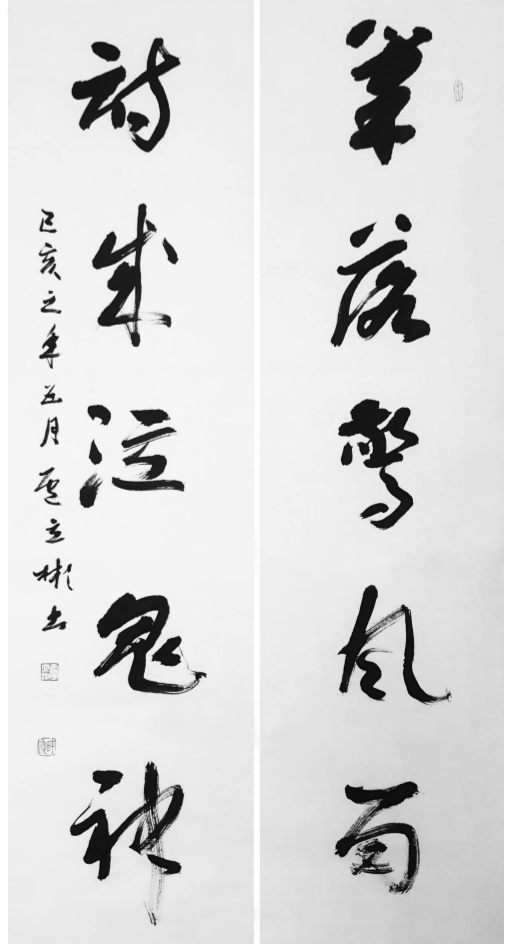 筆落驚風雨
詩成泣鬼神
己亥之年五月 立彬书